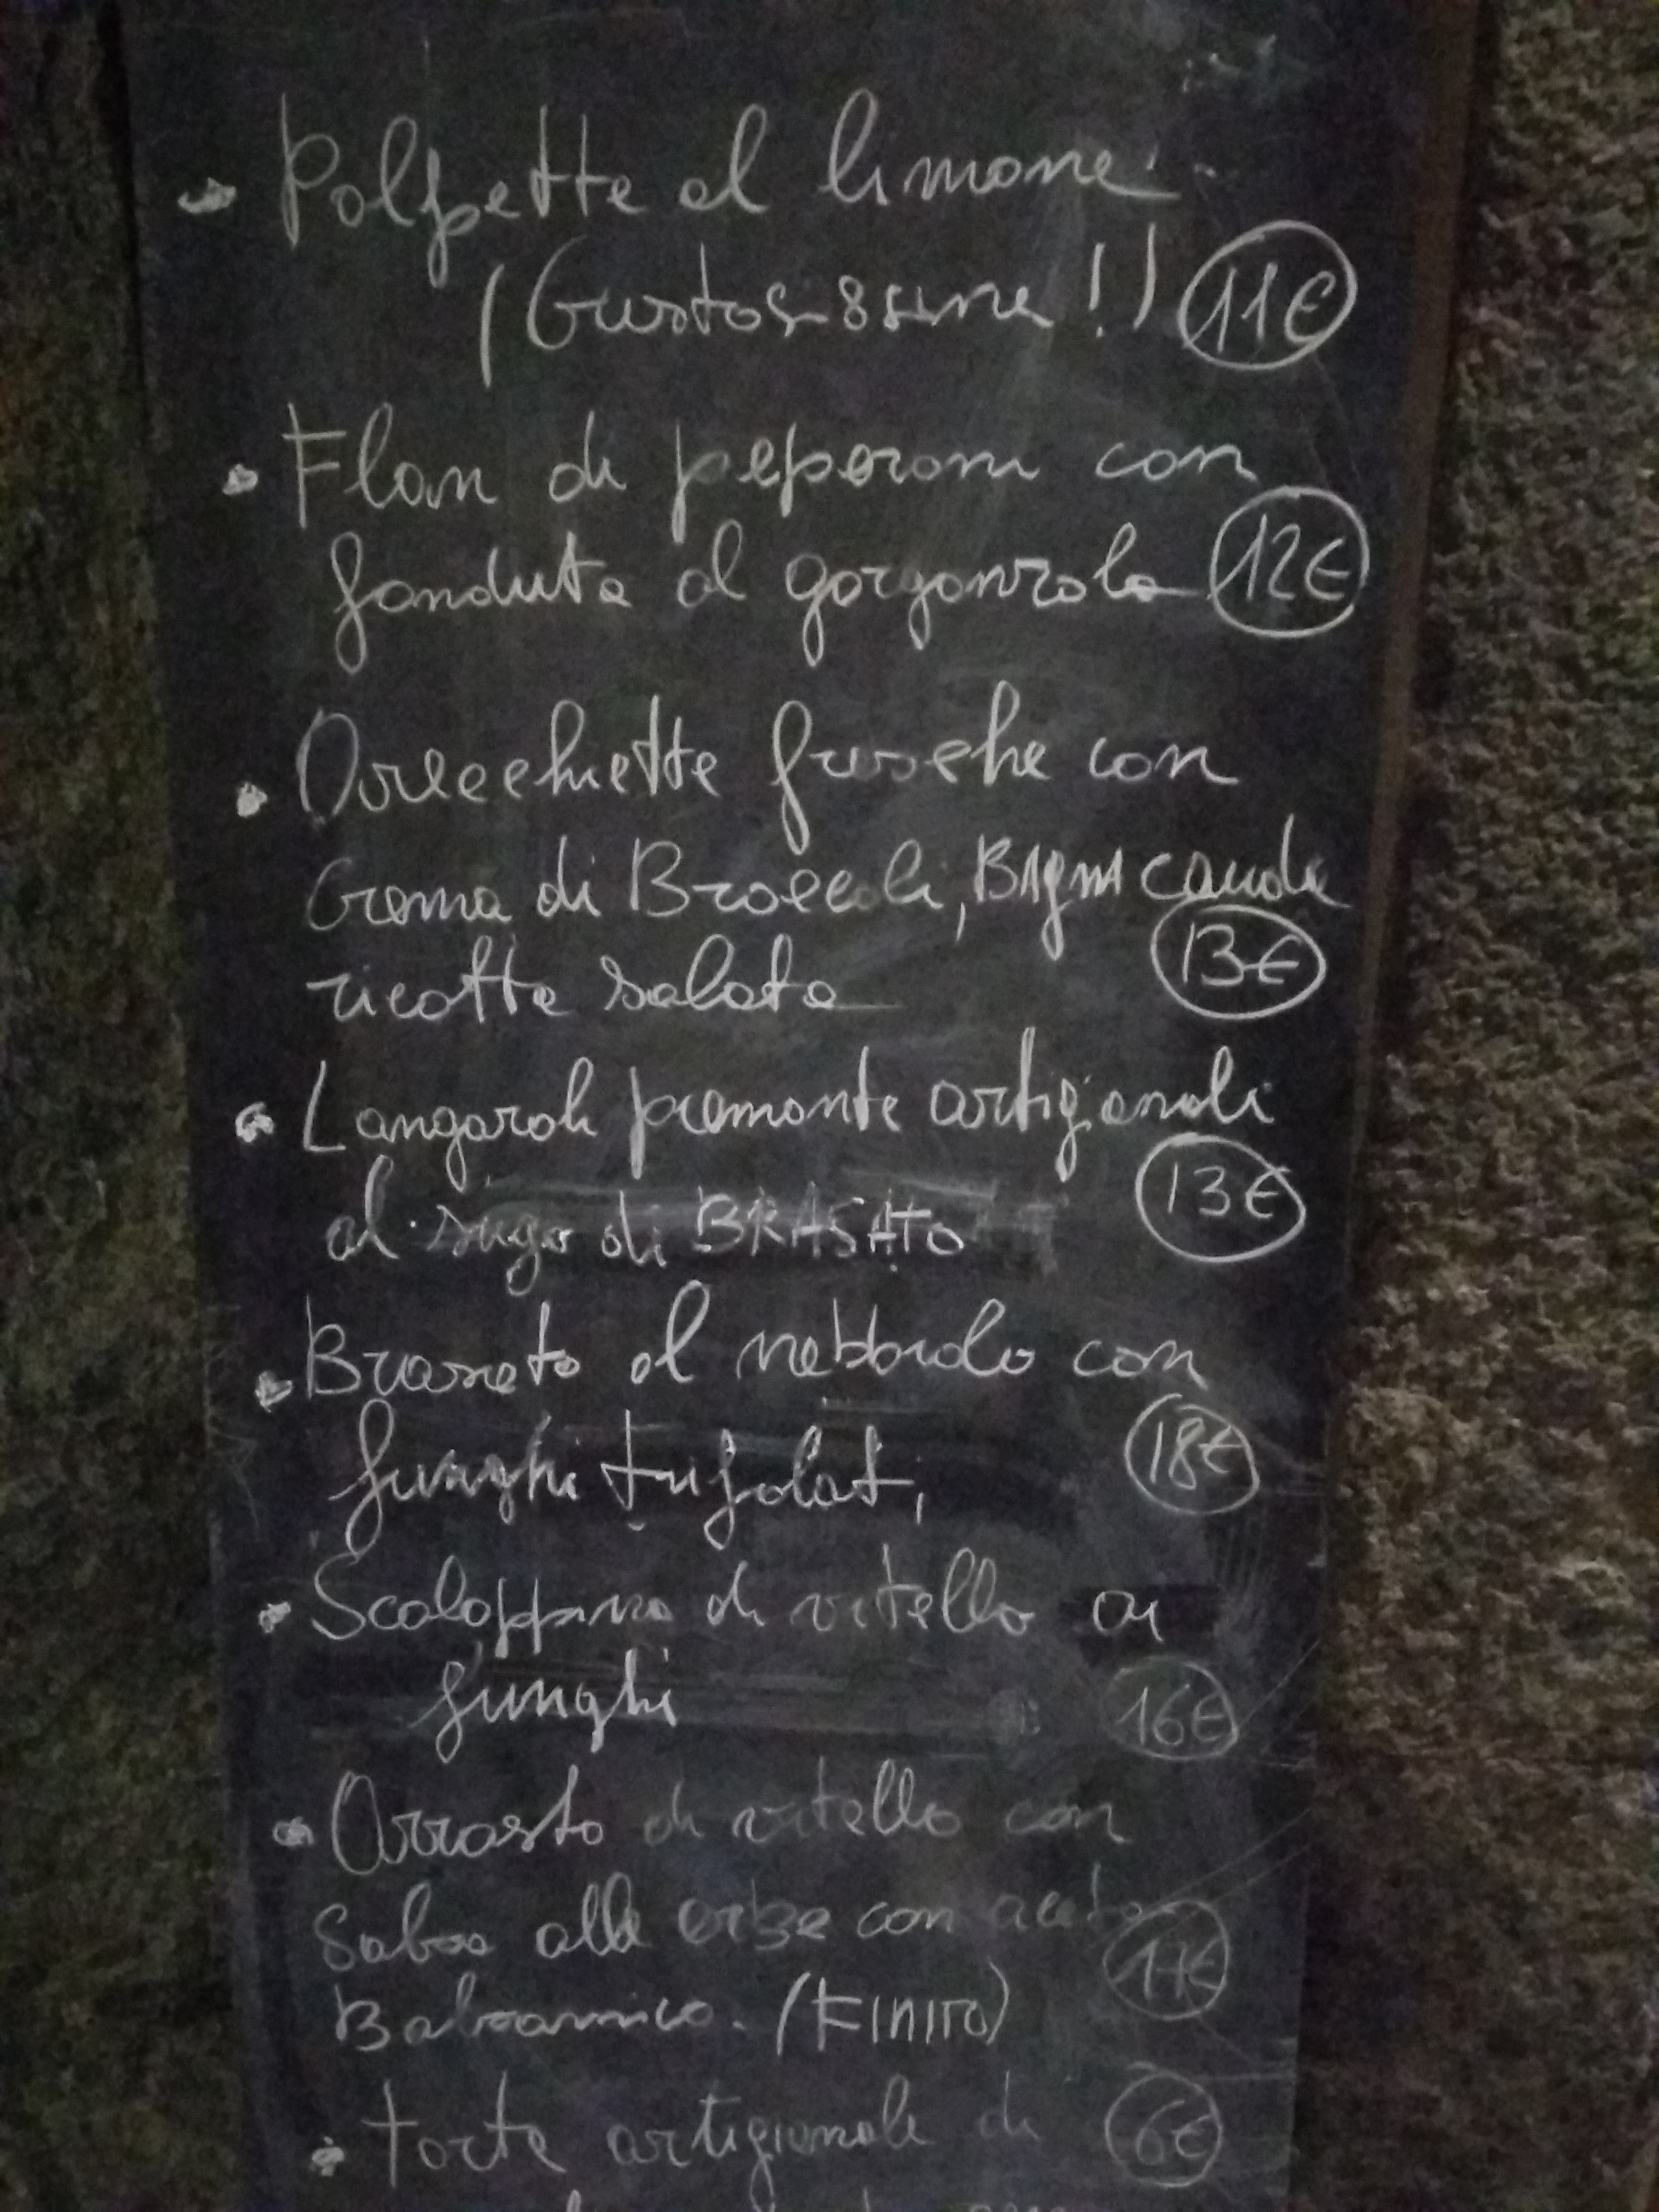 Polpette al limone
(Gustosissime!) 11€
Flan di peperoni con
fonduta al gorgonzola 12€
Orecchiette fresche con
Crema di Broccoli, BAGNA cauda
ricotta salata 13€
Langaroli piemonte artigianali
al sugo di BRASATO 13€
Brasato al nebbiolo con
funghi trifolati 18€
Scaloppina di vitello ai
funghi 16€
Arrosto di vitello con
Salsa alle erbe con aceto
Balsamico. (FINITO)
torte artigianali di 6€